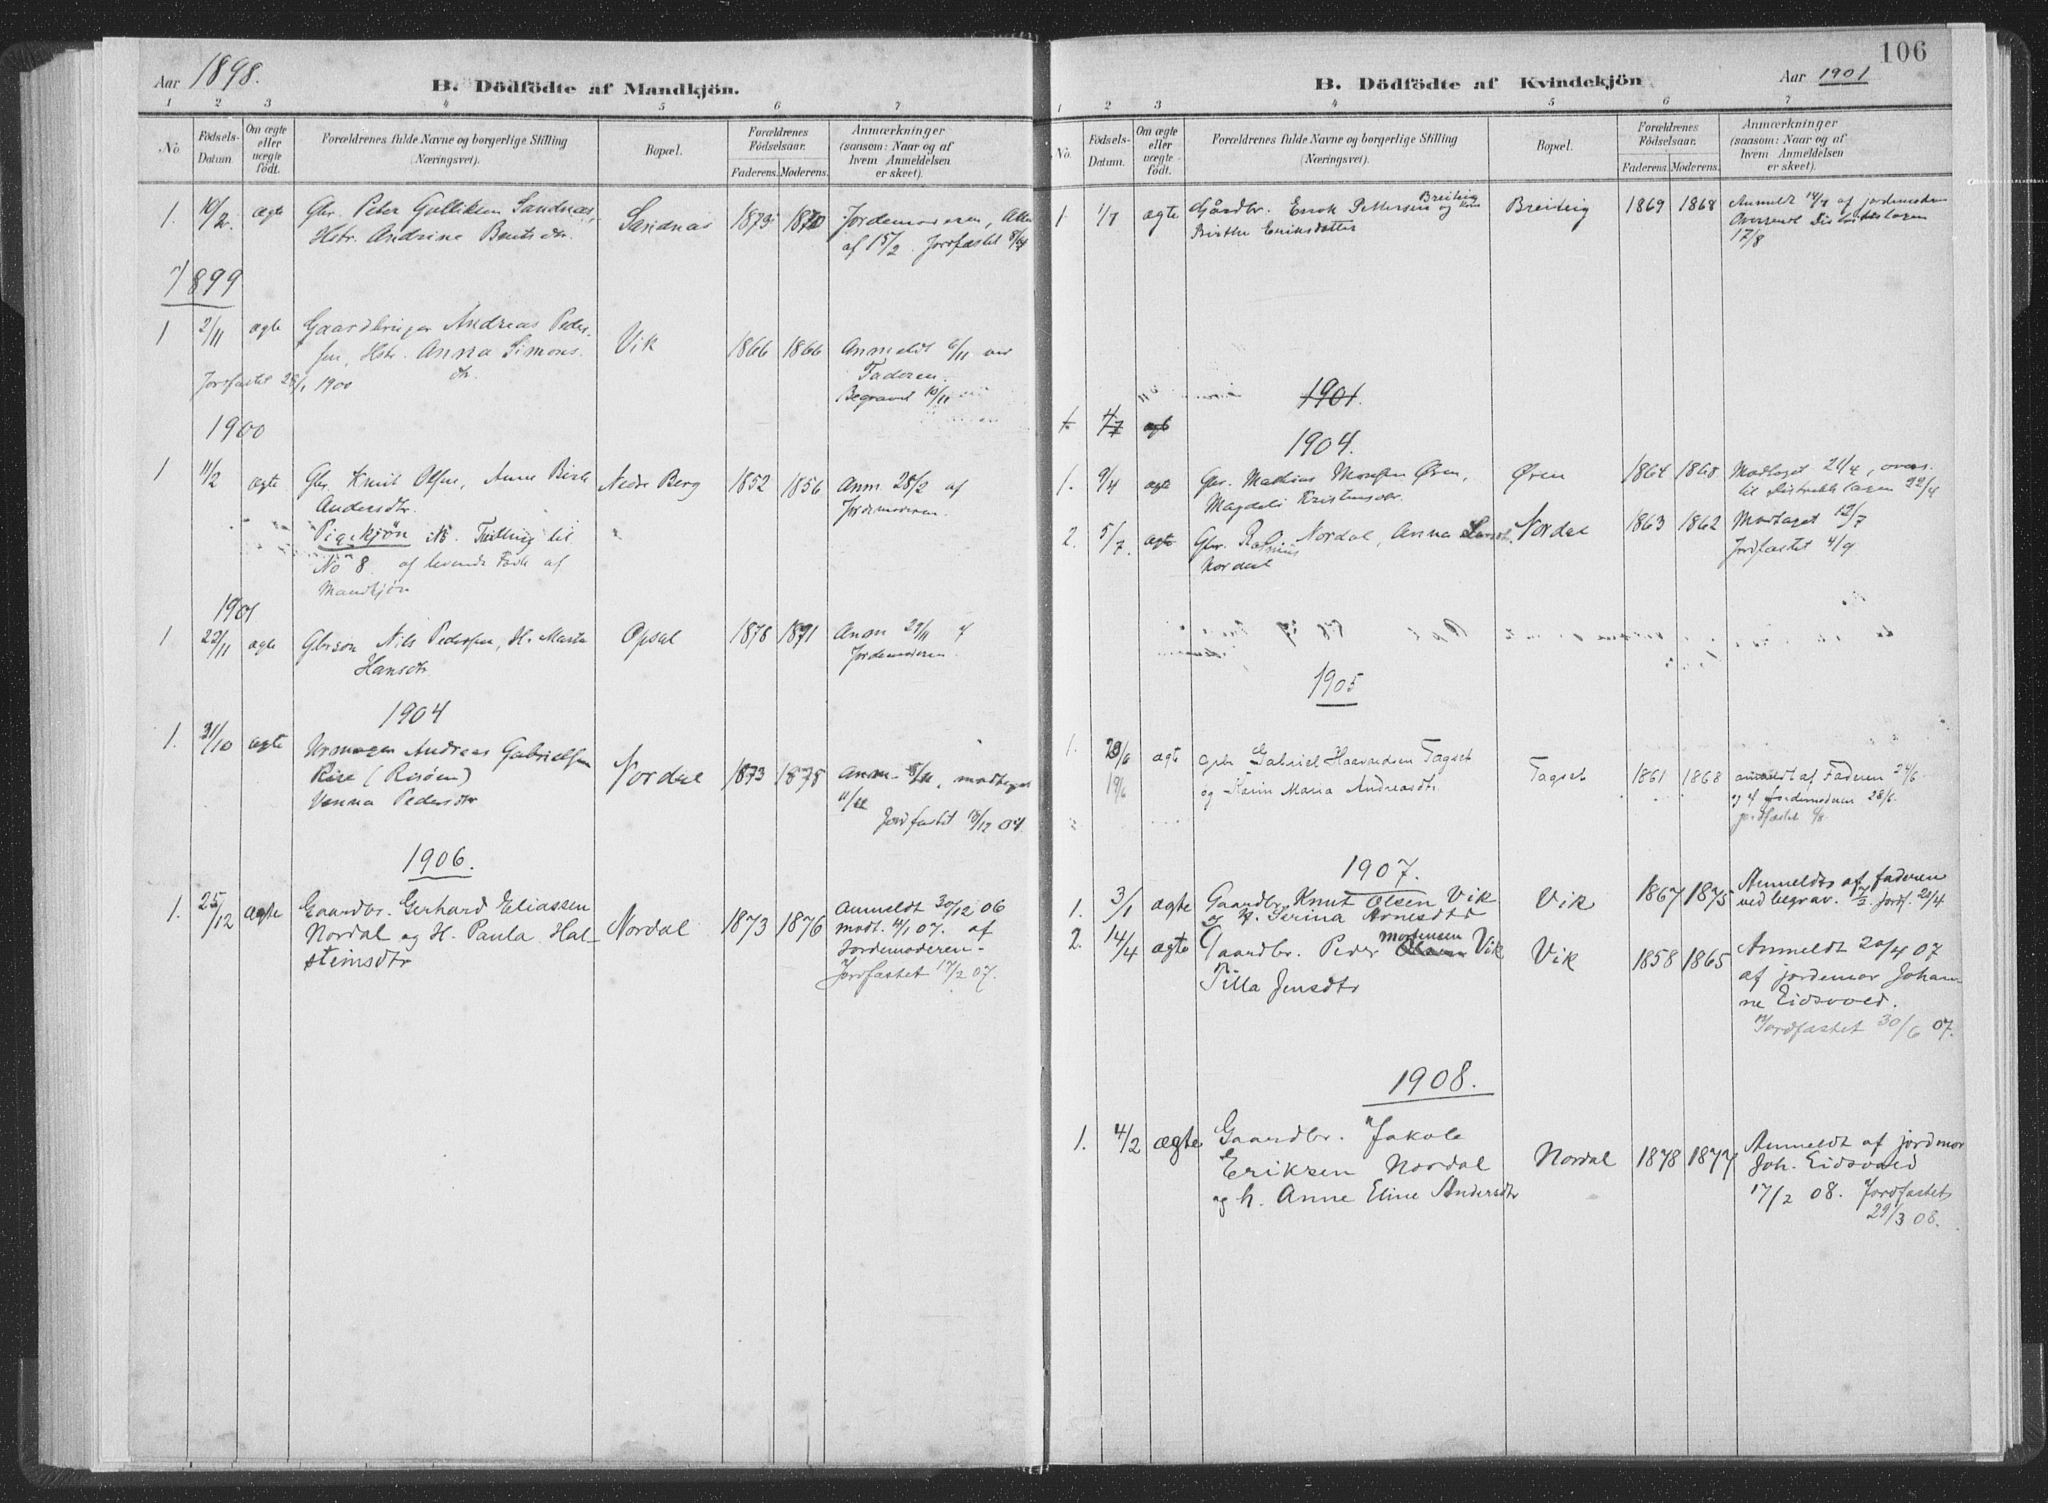 Aar 1898.
B. Dödfödte af Mandkjön.
1 2 3 4 5 6 7
No. Födsels-Datum. Om ægte eller uægte födt. Forældrenes fulde Navne og borgerlige Stilling (Næringsvei). Bopæl. Forældrenes Födselsaar. Faderens. Moderens. Anmærkninger (saasom: Naar og af hvem Anmeldelsen er skeet).
1. 10/2. ægte Gbr. Peter Sandnæs, Sandnæs 1873 1870 Jordemoderen,
Hstr. Andrine af 15/2. Jordfæstet
1899
1 2/11 ægte Gaardbruger Andreas Peder- Vik 1866 1866 Anmeldt 6/11 ved
sen, Hstr. Anna Simons- Faderen.
dtr. Begravet 10/11
Jordfæstet 1900
1900
1 11/2 ægte Gbr. Knut Olsen, Anne Berte Nedre Berg 1852 1856 Anm. 28/2 af
Andersdtr. Jordemoderen.
Pigekjön Tvilling til
No 8 af levende Fødte af
Mandkjön
1901
1 22/11 ægte Gbrson Nils Pedersen, H. Marta Opsal 1878 1871 Anm 29/11 af
Hansdtr. Jordemoderen.
1904
1. 31/10 ægte Urmager Andreas Gabrielsen
Rise (Risöen) Nordal 1873 1875 Anm. 8/11, modtaget
Vanna Pedersdtr 11/11
Jordfæstet 18/12 04.
1906.
1. 25/12 ægte Gaardbr. Gerhard Eliassen Nordal 1873 1876 Anmeldt 30/12 06
Nordal og H. Paula Hal- modt. 4/1 07. af
steinsdtr Jordemoderen.
Jordfæstet 17/2 07.
106
B. Dödfödte af Kvindekjön Aar 1901
1 2 3 4 5 6 7
No. Födsels-Datum. Om ægte eller uægte födt. Forældrenes fulde Navne og borgerlige Stilling (Næringsvei). Bopæl. Forældrenes Födselsaar. Faderens. Moderens. Anmærkninger (saasom: Naar og af hvem Anmeldelsen er skeet).
1 1/7 ægte Gårdbr. Enok Pettersen Breivig og Kone Breivig 1869 1868 Anmeldt 14/7 af jordemoderen
Birthe Eriksdatter Oversendt Distriktslægen
17/8
1901.
1 4/7 ægte
1904.
1. 9/4 ægte Gbr. Mathias Øren, Øren 1864 1868 Modtaget 21/4, overs.
Magdeli Kristensdtr. til Distriktslægen 22/4
2. 5/7. ægte Gbr. Rasmus Nordal, Anna Nordal 1863 1862 Modtaget 12/7
Nordal Jordfæstet 4/9
1905
1. ægte Gbr Gabriel Haavardsen Tagset Tagset 1861 1868 anmeldt af Faderen 24/6
19/6 og Karin Maria Andreasdtr. og af Jordemoderen 28/6.
jordfæstet
1907.
1. 3/1 ægte Gaardbr. Knut Olsen Vik Vik 1867 1875 Anmeldes af faderen
og H. Serina Arnesdtr ved begrav. Jordf. 21/4
2. 14/4 ægte Gaardbr. Peder Mortensen Vik Vik 1858 1865 Anmeldt 20/4 07
Tilla Jensdtr af jordemor Johan-
ne Eidsvold.
Jordfæstet 30/6 07.
1908.
1. 4/2 ægte Gaardbr. Jakob Nordal 1878 1877 Anmeldt af jordmor
Eriksen Nordal Joh. Eidsvold
og h. Anne Eline Andersdtr 17/2 08. Jordfæstet
29/3 08.